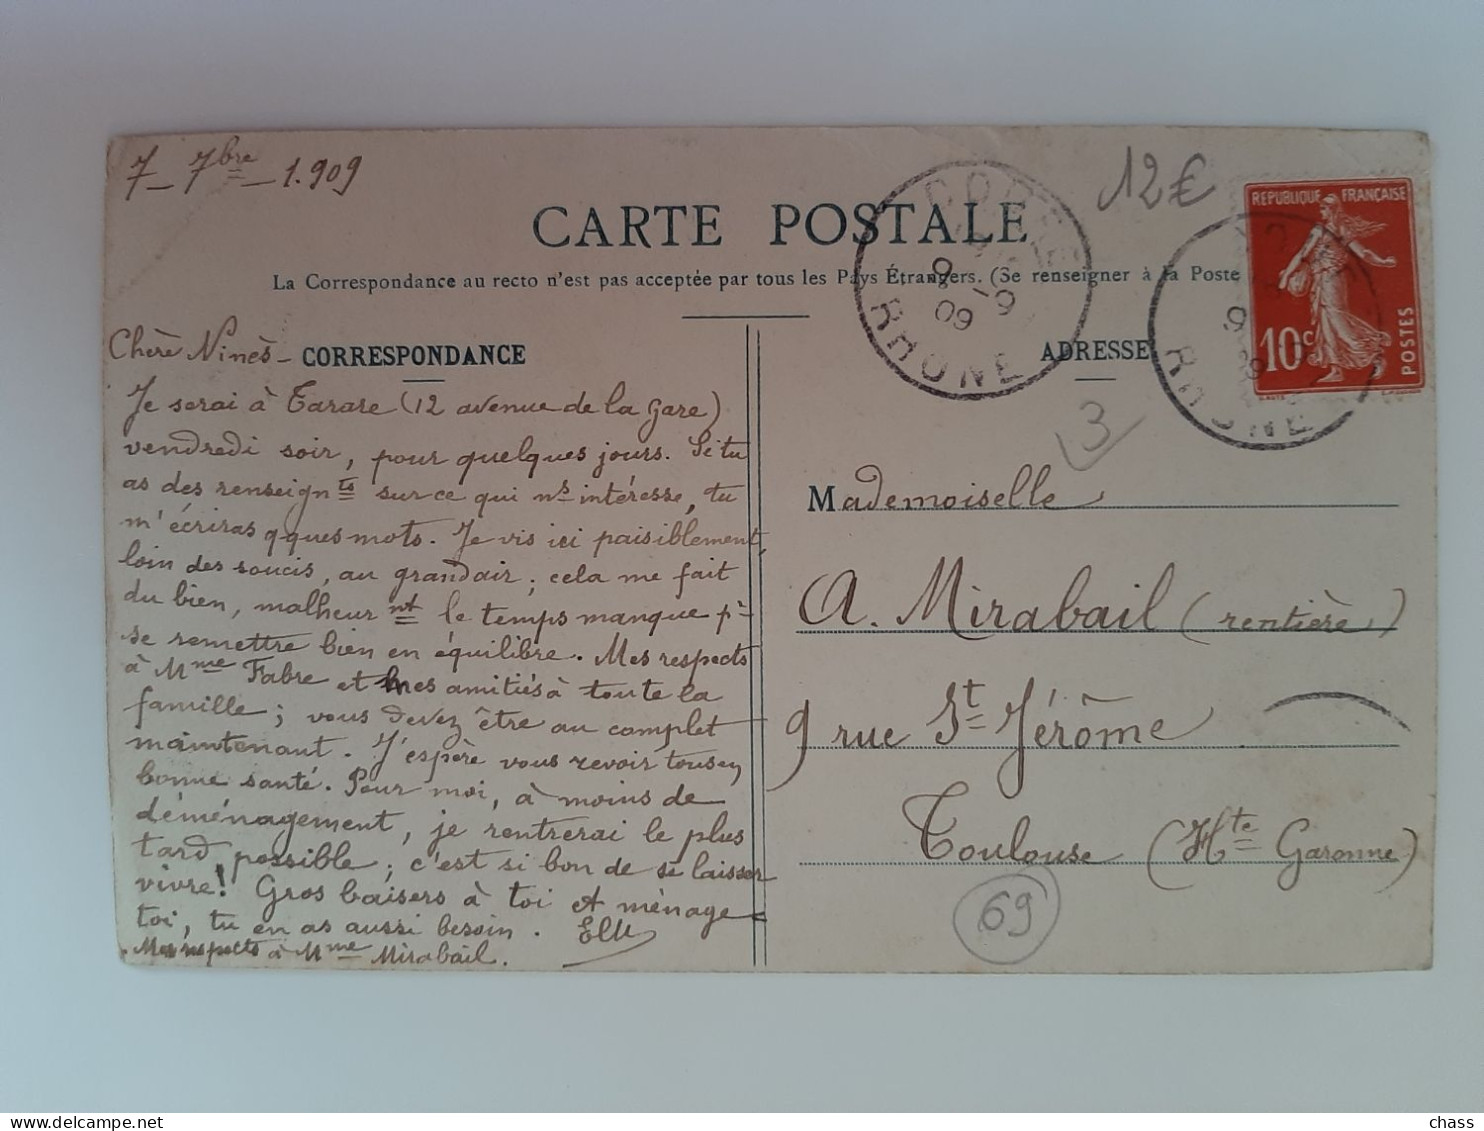 7 - 7bre - 1.909
12€
CARTE POSTALE
La Correspondance au recto n'est pas acceptée par tous les Pays Étrangers. (Se renseigner à la Poste
REPUBLIQUE FRANÇAISE
10c
POSTES
RHONE
9 - 9
09
RHONE
Chère Ninès -
CORRESPONDANCE
Je serai à Tarare (12 avenue de la gare)
vendredi soir, pour quelques jours. Si tu
as des renseignts sur ce qui ns intéresse, tu
m'écriras qques mots. Je vis ici paisiblement,
loin des soucis, au grand air ; cela me fait
du bien, malheurnt le temps manque pr
se remettre bien en équilibre. Mes respects
à Mme Fabre et mes amitiés à toute la
famille ; vous devez être au complet
maintenant. J'espère vous revoir tous en
bonne santé. Pour moi, à moins de
déménagement, je rentrerai le plus
tard possible ; c'est si bon de se laisser
vivre ! Gros baisers à toi et ménage-
toi, tu en as aussi besoin.
Mes respects à Mme Mirabail.
ADRESSE
3
Mademoiselle
A. Mirabail (rentière)
9 rue St Jérôme
Toulouse (Hte Garonne)
69
chass